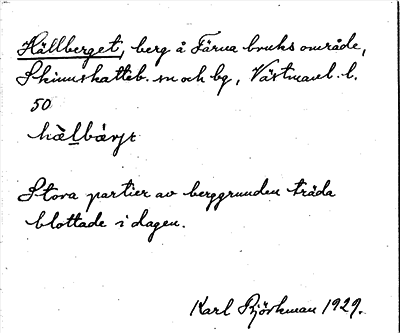 Hällberget, berg å Färna bruks område,
Skinnskatteb. sn och bg, Västmanl. l.
50
hä̀lbä́rjt
Stora partier av berggrunden träda
blottade i dagen.
Karl Björkman 1929.